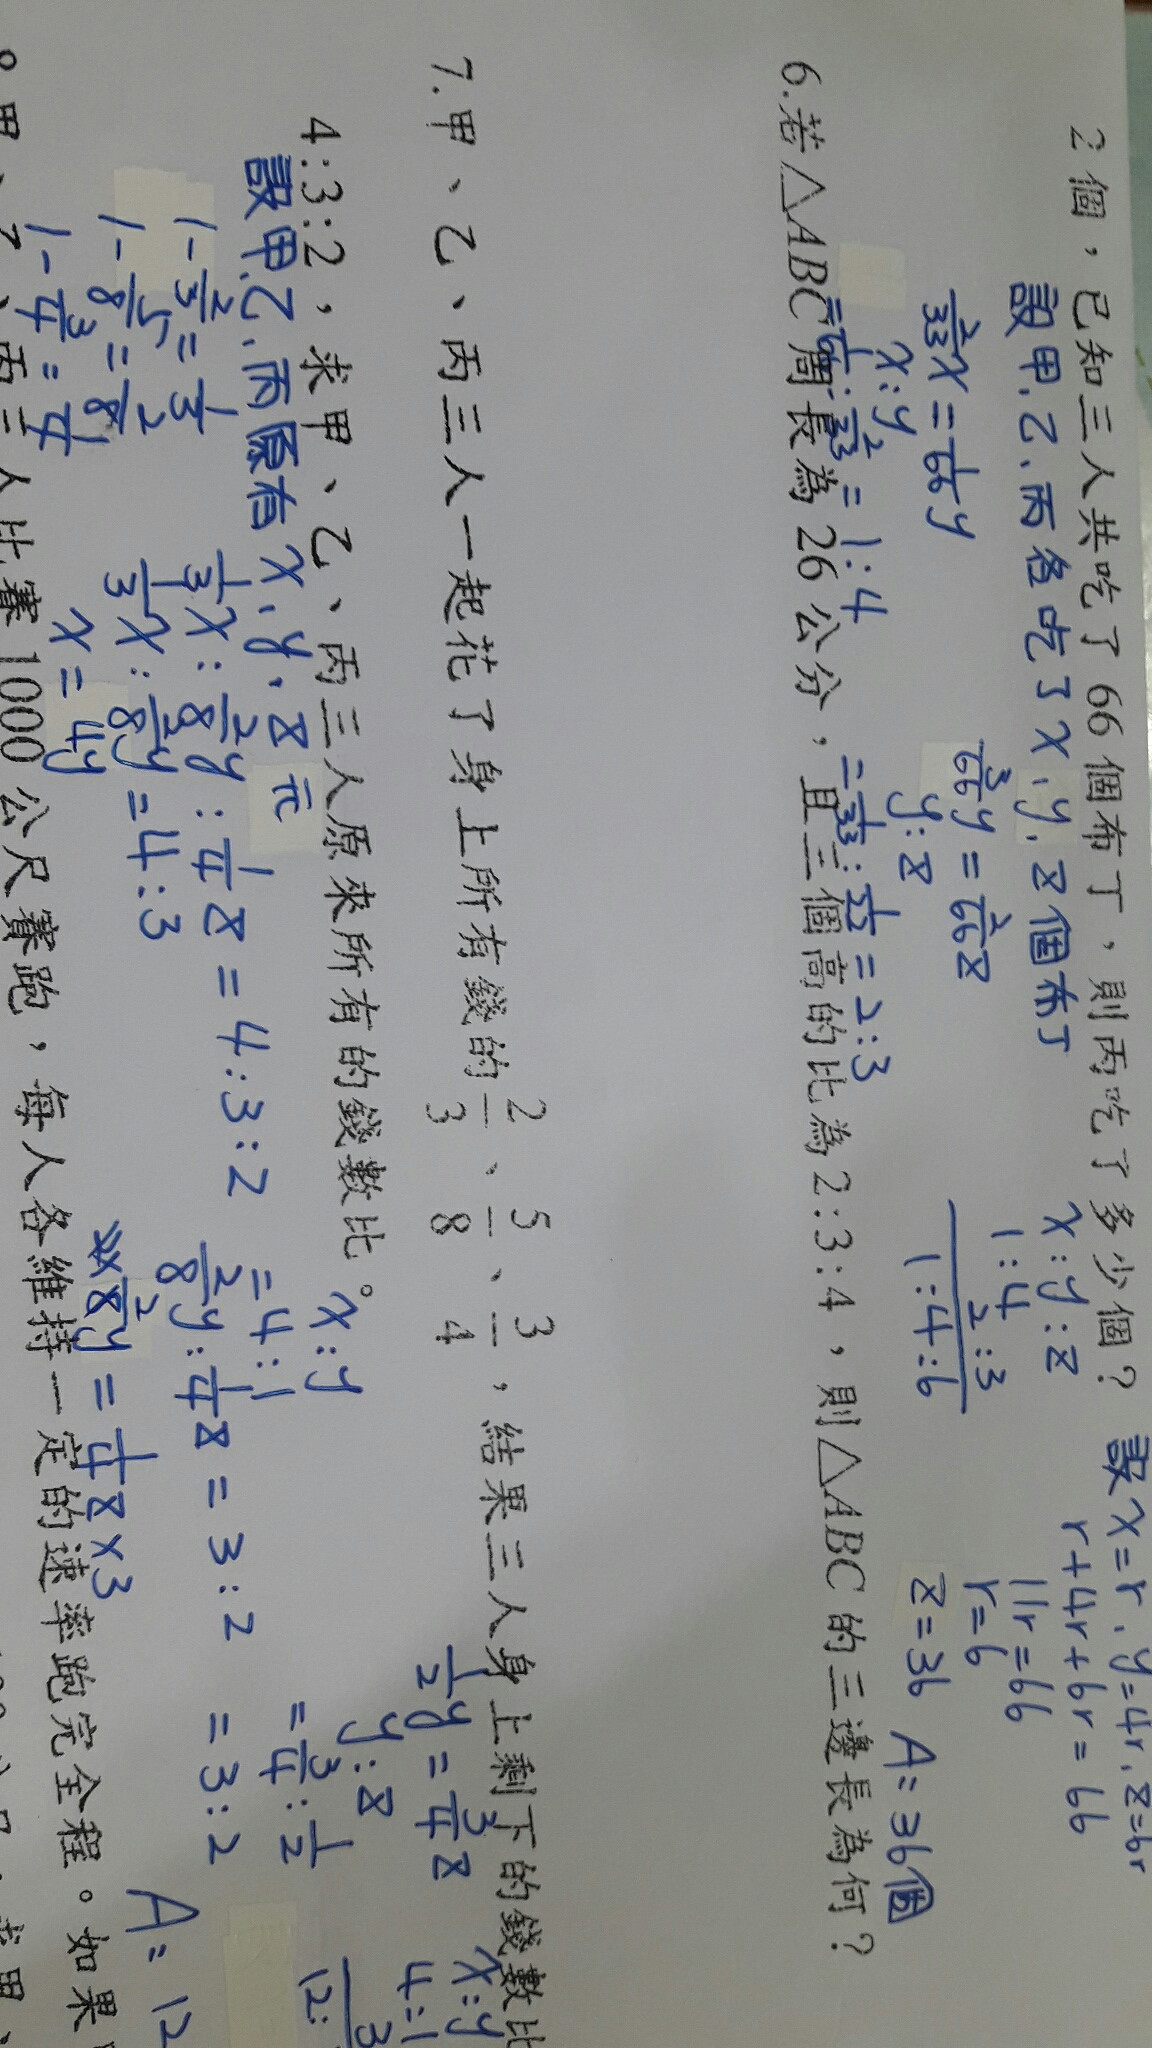 2個,已知三人共吃了66個布丁,則丙吃了多少個?
設甲.乙.丙各吃了x、y、z個布丁
2/33x=1/66y
x:y
=1/66:2/33=1:4
3/66y=2/66z
y:z
=1/33:1/22=2:3
x:y:z
1:4
2:3
1:4:6
設x=r、y=4r、z=6r
r+4r+6r=66
11r=66
r=6
z=36
A:36個
6.若△ABC周長為26公分,且三個高的比為2:3:4,則△ABC的三邊長為何?
7.甲、乙、丙三人一起花了身上所有錢的2/3、5/8、3/4,結果三人身上剩下的錢數比
4:3:2,求甲、乙、丙三人原來所有的錢數比。
設甲.乙.丙原有x、y、z元
1-2/3=1/3
1-5/8=
1-3/4=1/4
1/3x:
y:1/4z=4:3:2
1/3x:
y=4:3
x=
4y
x:y
=4:1
y:1/4z=3:2
y=1/4z×3
y=3/4z
y:z
=3/4:1/2
=3:2
x:y
4:1
3
12:
A:12
甲、乙、丙三人比賽1000公尺賽跑,每人各維持一定的速率跑完全程。如果